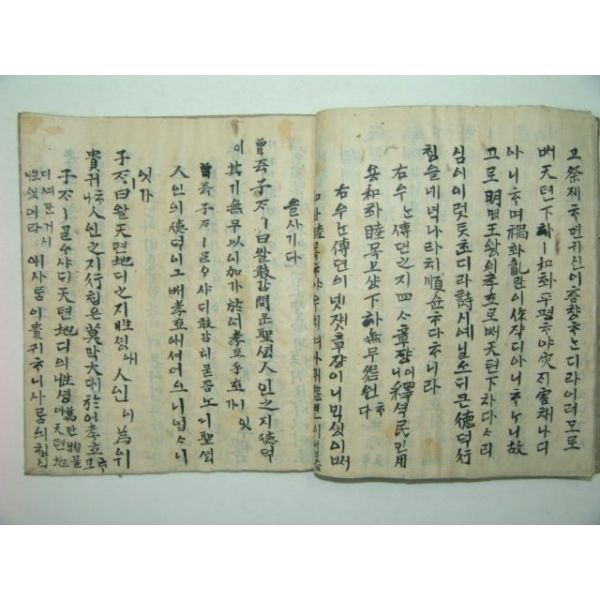 고祭졔ᄒᆞ면귀신이흠향ᄒᆞᄂᆞ디라이러모로
배天텬下하ㅣ和화平평ᄒᆞ야灾ᄌᆡ害해나디
아니ᄒᆞ며禍화亂란이作작디아니ᄒᆞᄂᆞ니故
고로明명王왕의孝효로ᄡᅥ天텬下하다ᄉᆞ리
심이이럿ᄐᆞᆺᄒᆞ디라詩시예닐오디큰德덕行
ᄒᆡᆼ을네녁나라히順슌ᄒᆞᆫ다ᄒᆞ니라
右우ᄂᆞᆫ傳뎐之지四ᄉᆞ章쟝이니釋셕民민用
용和화睦목上샹下하無무怨원다
右우ᄂᆞᆫ傳뎐의넷쟷章쟝이니ᄇᆡᆨ셩이ᄡᅥ
和화睦목ᄒᆞ야우히며아래怨원
을사기다
曾증子ᄌᆞㅣ曰왈敢감問문聖셩人인之지德덕
이其기無무以이加가於어孝효乎호ㅣ잇가
曾증子ᄌᆞㅣᄀᆞᆯᄋᆞ샤디敢감히묻ᄌᆞᆸ노니聖셩
人인의德덕이그ᄡᅥ孝효애셔더으니업ᄉᆞ니
잇가
子ᄌᆞㅣ曰왈天텬地디之지性셩애人인이爲위
貴귀ᄒᆞ니人인之지行ᄒᆡᆼ은莫막大대於어孝효고
子ᄌᆞㅣᄀᆞᆯᄋᆞ샤디天텬地디의性셩萬만物물天텬地
애사ᄅᆞᆷ이貴귀ᄒᆞ니사ᄅᆞᆷ의ᄒᆡᆼ실